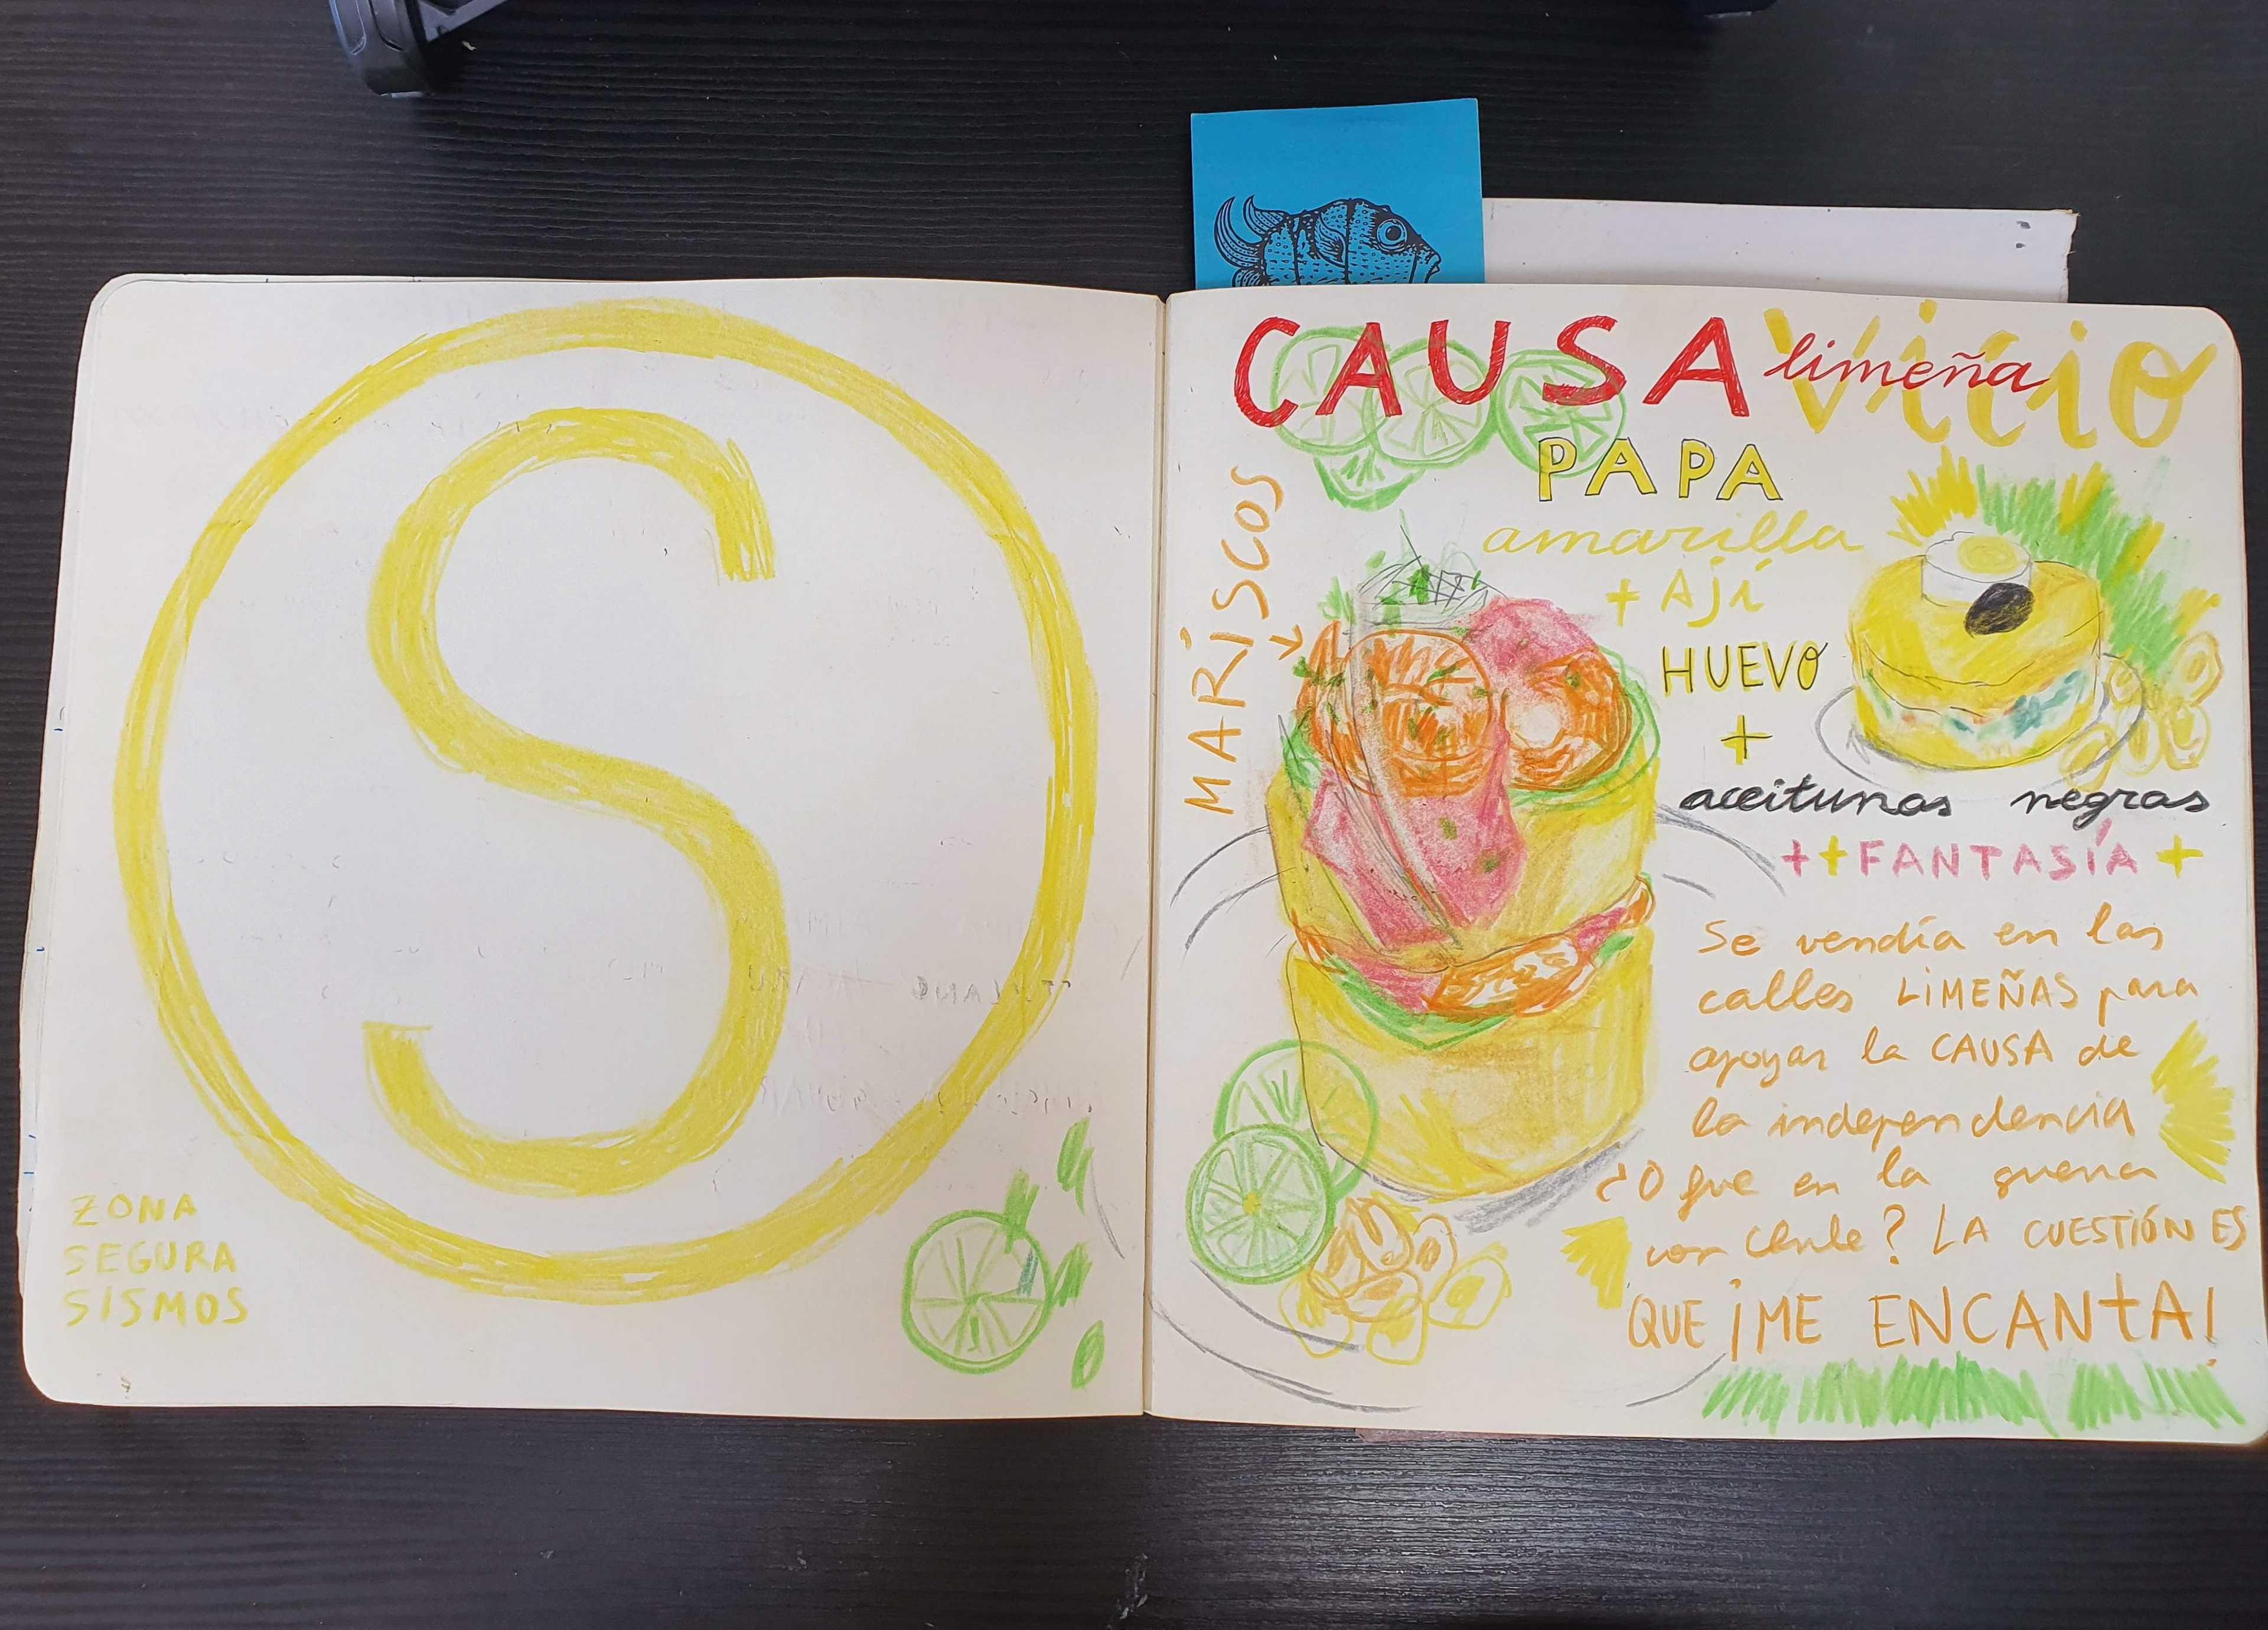 S
ZONA
SEGURA
SISMOS
CAUSA limeña
vicio
PAPA
amarilla
+ Ají
HUEVO
+
aceitunas negras
++FANTASÍA+
MARÍSCOS
Se vendía en las
calles LIMEÑAS para
apoyar la CAUSA de
la independencia
¿O fue en la guerra
con Chile? LA CUESTIÓN ES
QUE ¡ME ENCANTA!